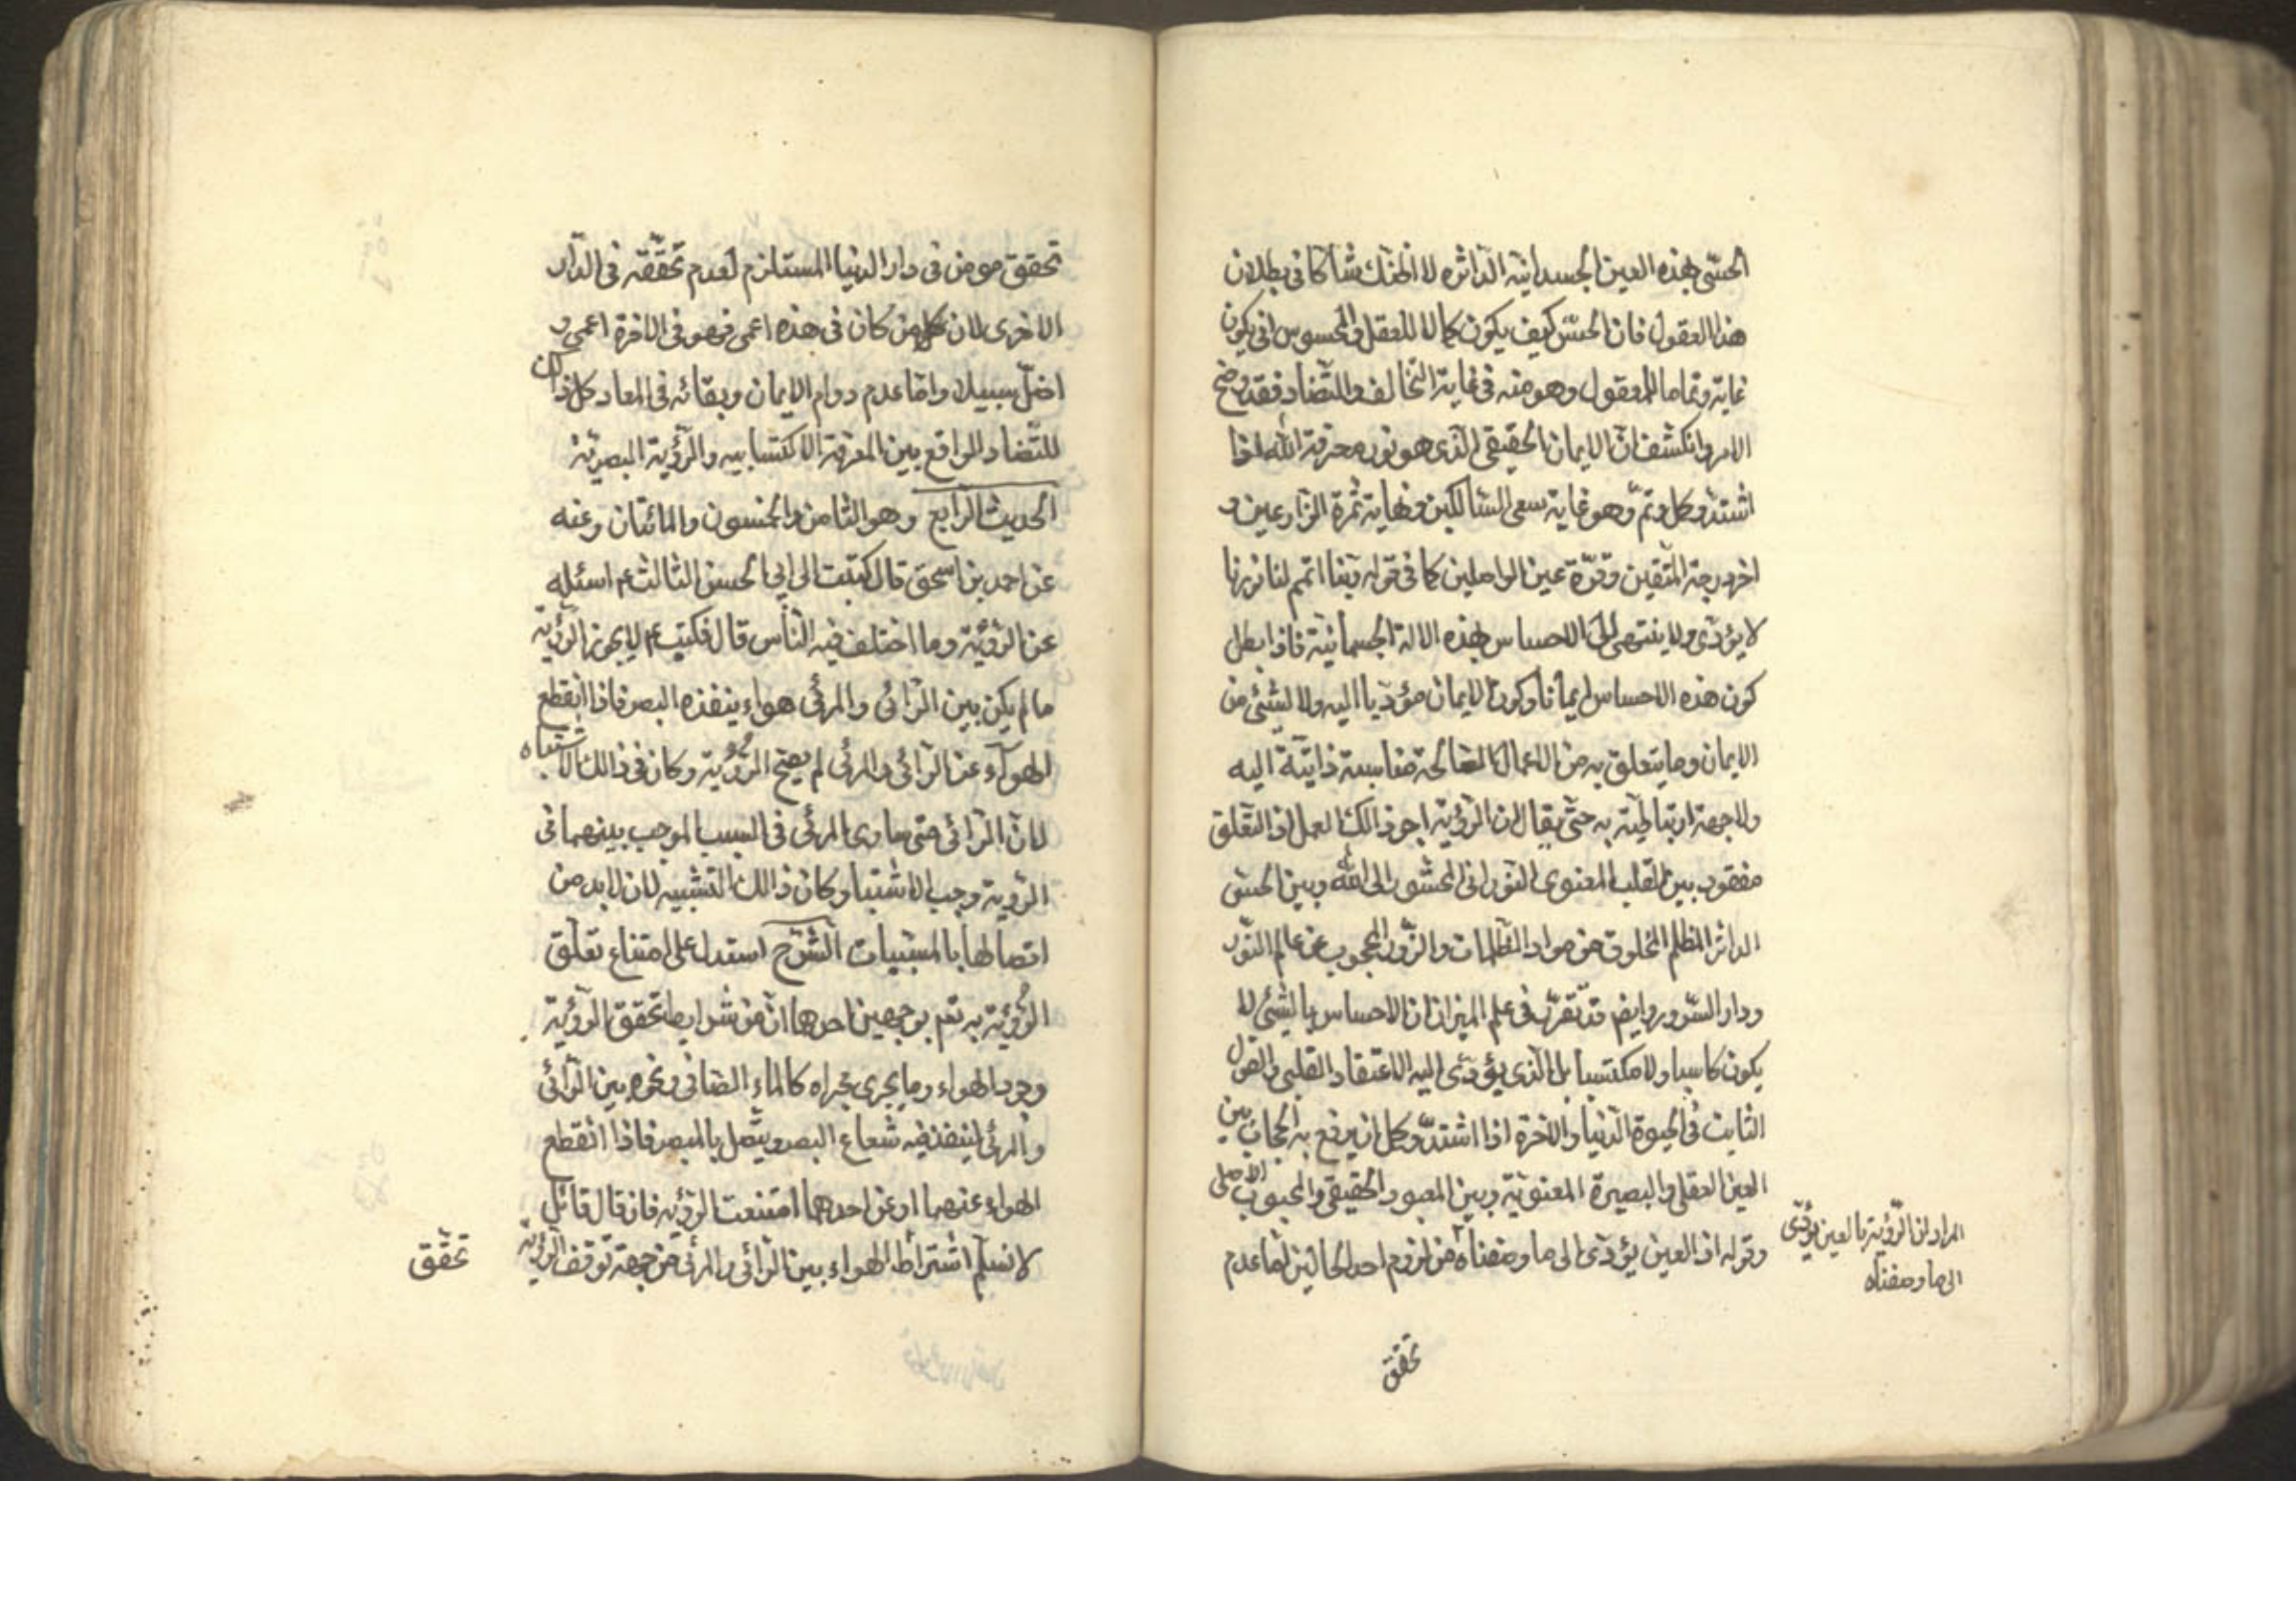 الحسّى بهذه العين الجسدانية الداثره لا اظنك شاكا فى بطلان
هذا العقول فان الحسّ كيف يكون كمالا للعقل والمحسوس انى يكون
غاية وتماما للمعقول وهو منه فى غاية التخالف والتضاد فقد وضح
الامر وانكشف انّ الايمان الحقيقى الذى هو نور معرفة الله اذا
اشتدّ وكمل وتمّ وهو غاية سعى السالكين ونهاية ثمرة الزارعين و
اخر درجة المتقين وقرّة عين الواصلين كما فى قوله ربنا اتمم لنا نورنا
لا يؤدّى ولا ينتهى الى الاحساس بهذه الالة الجسمانية فاذا بطل
كون هذه الاحساس ايمانا وكون الايمان مؤديا اليه ولا لشئ من
الايمان وما يتعلق به من الاعمال الصالحة مناسبة ذاتية اليه
ولا جهة ارتباطية به حتى يقال ان الرؤية اجر ذالك العمل اذ التعلق
مفقود بين القلب المعنوى النورانى المحشور الى الله وبين الحسّ
الداثر المظلم المخلوق من مواد الظلمات والزور المحجوب عن عالم النور
ودار السرور وايضا قد تقرّر فى علم الميزان ان الاحساس بالشئ لا
يكون كاسبا ولا مكتسبا بل الذى يؤدّى اليه الاعتقاد القلبى والقول
الثابت فى الحيوة الدنيا والاخرة اذا اشتدّ وكمل ان يرفع به الحجاب بين
العين العقلى والبصيرة المعنوية وبين المعبود الحقيقى والمحبوب الاصلى
وقوله اذ العين يؤدّى الى ما وصفناه من لزوم احد الحالين اما عدم
المراد ان الرؤية بالعين يؤدّى
الى ما وصفناه
تحقق
تحقق مومن فى دار الدنيا المستلزم لعدم تحقّقه فى الدار
الاخرى لان كل من كان فى هذه اعمى فهو فى الاخرة اعمى و
اضلّ سبيلا واما عدم دوام الايمان وبقائه فى المعاد كل ذالك
للتضاد الواقع بين المعرفة الاكتسابيه والرؤية البصرية
الحديث الرابع وهو الثامن والخمسون والمائتان وعنه
عن احمد بن اسحق قال كتبت الى ابى الحسن الثالث ع اسئله
عن الرؤية وما اختلف فيه الناس قال فكتب ع لا يجوز الرؤية
ما لم يكن بين الرائى والمرئى هواء ينفذه البصر فاذا انقطع
الهوآء عن الرائى والمرئى لم يصح الرؤية وكان فى ذالك الاشتباه
لان الرائى متى ساوى المرئى فى السبب الموجب بينهما فى
الرؤية وجب الاشتباه وكان ذالك التشبيه لان لابد من
اتصالها بالمسببات الشرح استدل على امتناع تعلق
الرؤية به تعم بوجهين احدهما ان من شرايط تحقق الرؤية
وجود الهواء وما يجرى مجراه كالماء الصافى ونحوه بين الرائى
والمرئى لينفذ فيه شعاع البصر ويتّصل بالمبصر فاذا انقطع
الهواء عنهما او عن احدهما امتنعت الرؤيه فان قال قائل
لا نسلّم اشتراط الهواء بين الرائى والمرئى من جهة توقف الرؤية
تحقّق